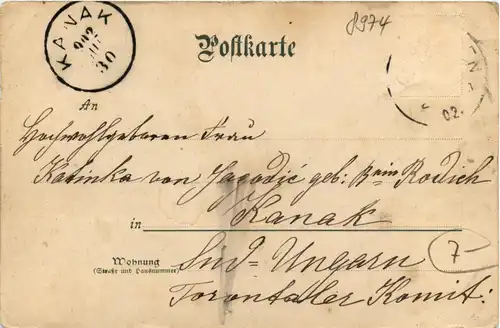 KANAK
902
30
8974
Postkarte
02.
An
Hochwohlgeboren Frau
Katinka von Jagodić geb: Bnin Rodich
Kanak
in
Wohnung
(Straße und Hausnummer)
Süd-Ungarn
7-
Torontaller Komit: